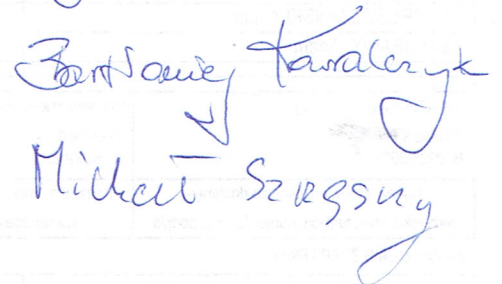 Bartłomiej Kowalczyk
Michał Szczęsny